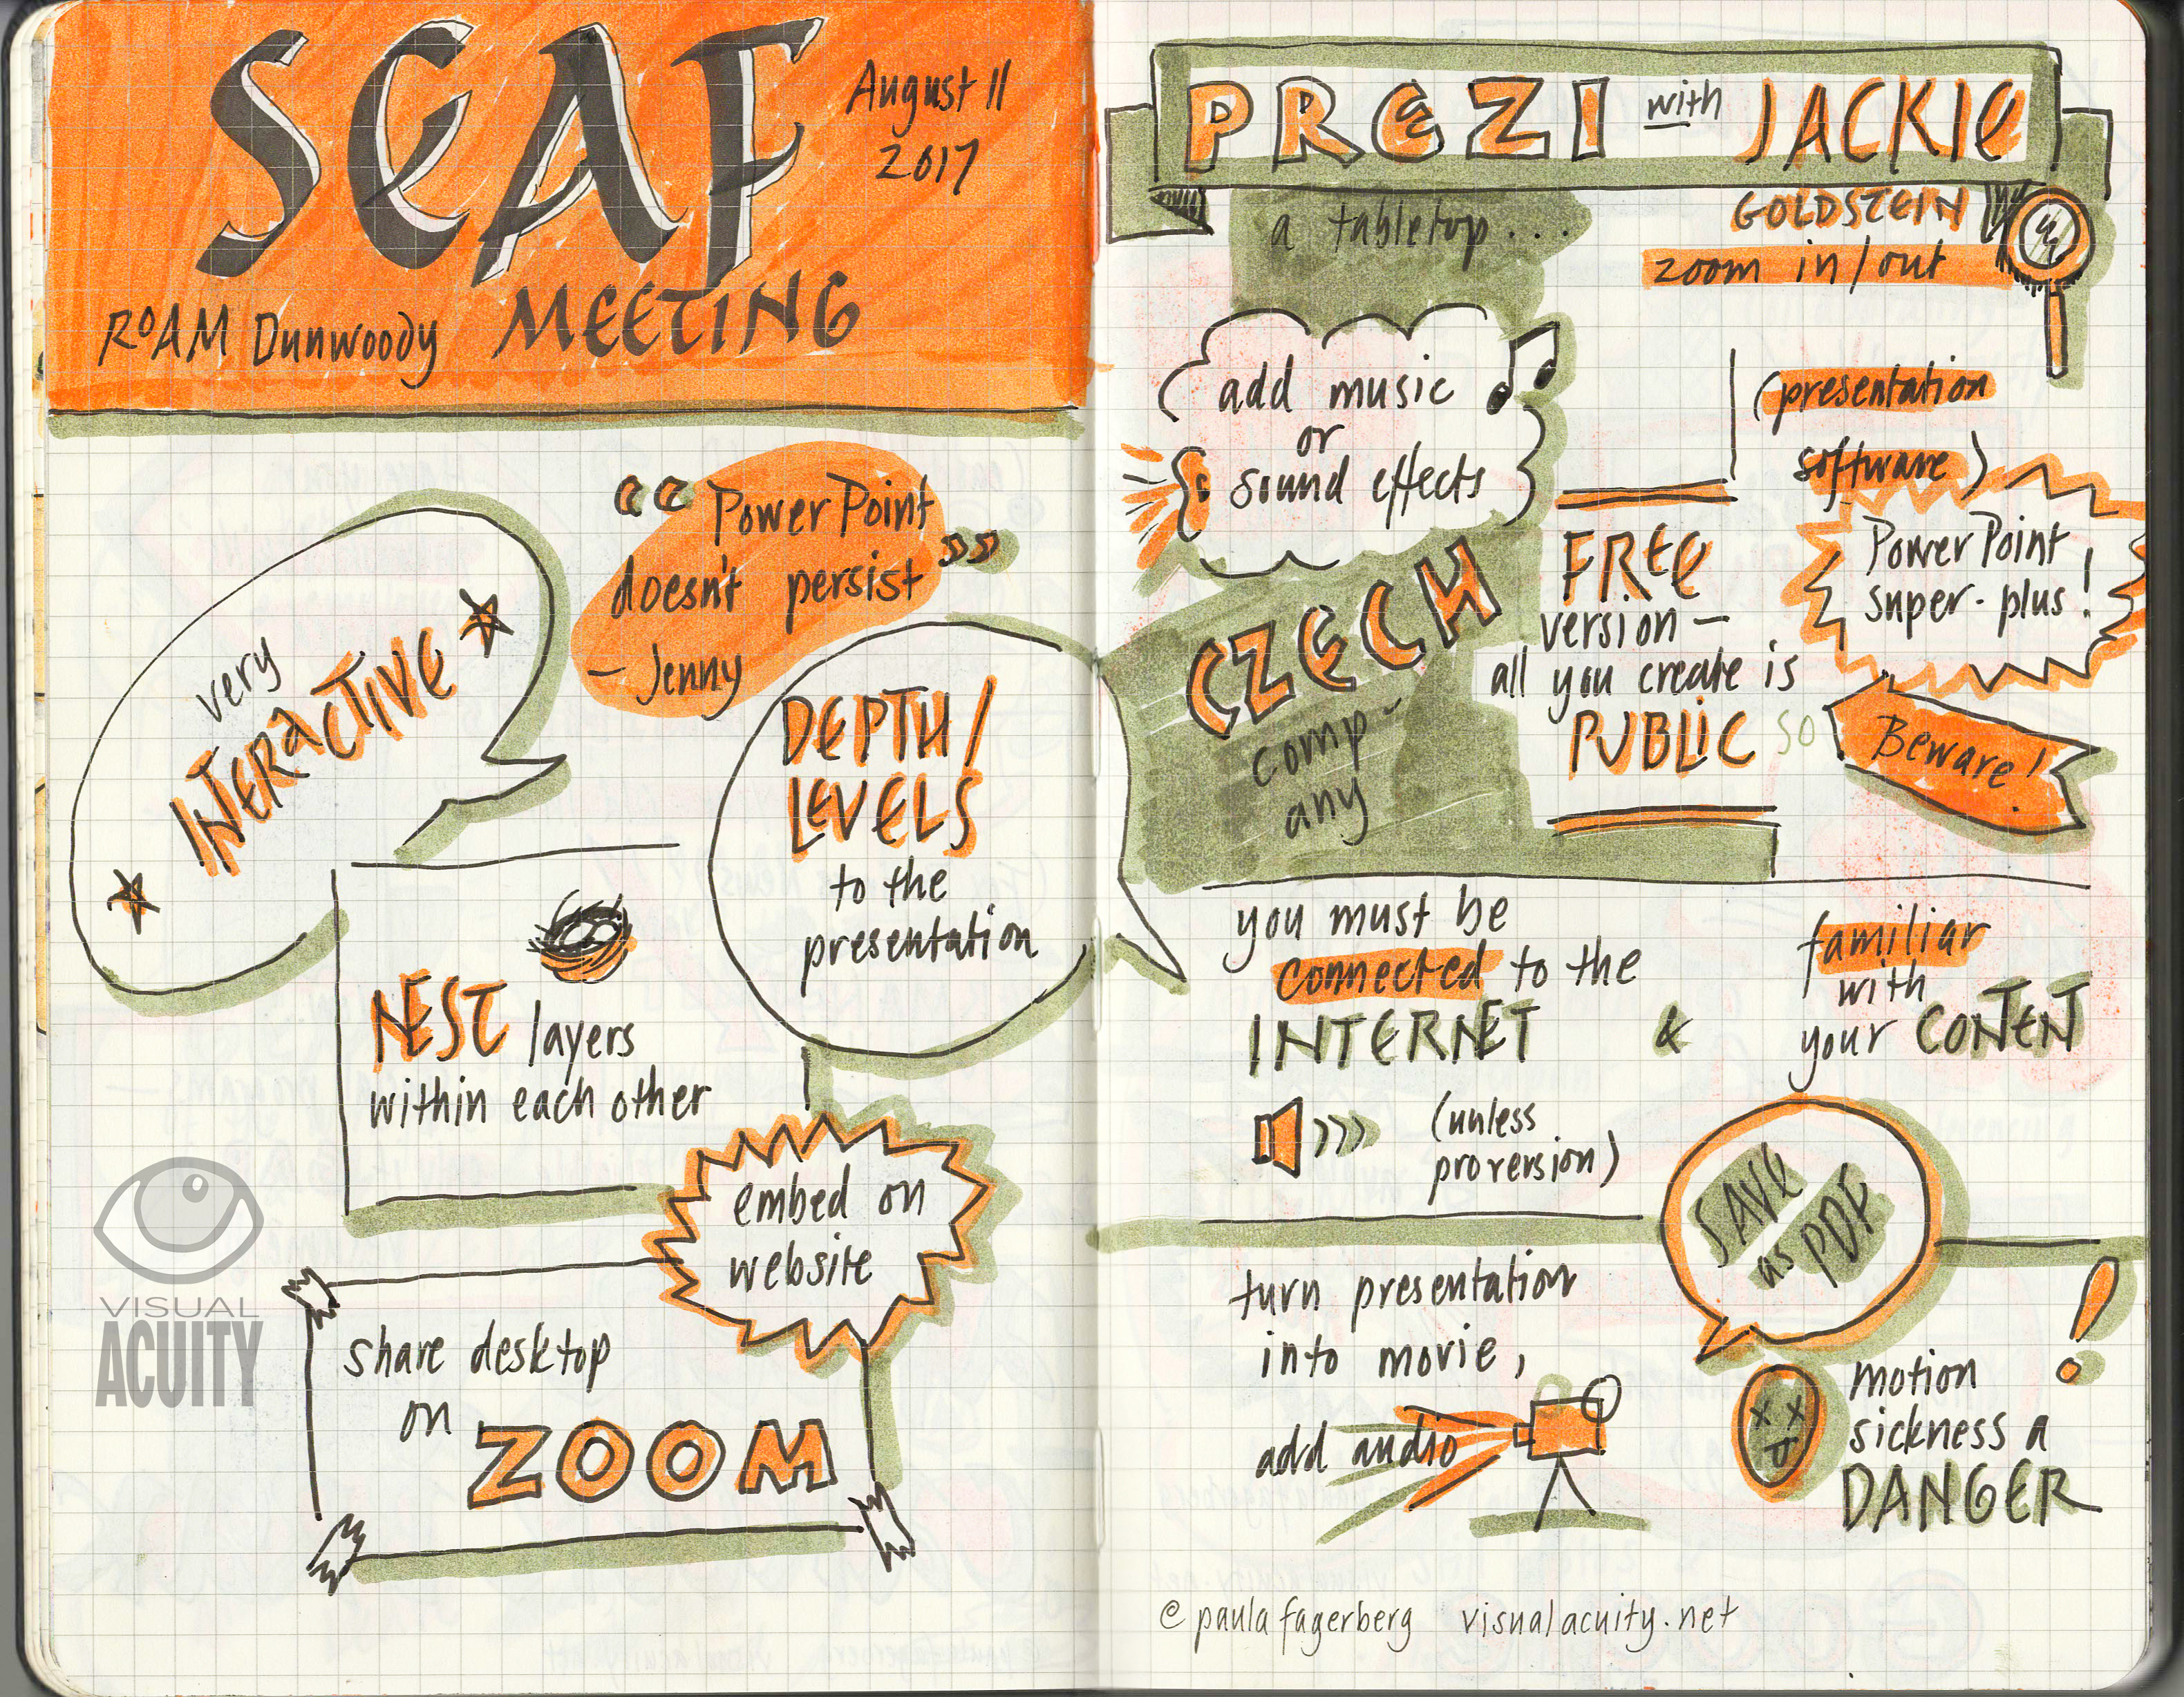 SEAF
August 11
2017
ROAM Dunwoody MEETING
very
INTERACTIVE
“PowerPoint
doesn't persist”
- Jenny
DEPTH/
LEVELS
to the
presentation
NEST layers
within each other
embed on
website
share desktop
on ZOOM
VISUAL
ACUITY
PREZI with JACKIE
GOLDSTEIN
a tabletop...
zoom in/out
add music
or
sound effects
(presentation
software)
PowerPoint
super-plus!
CZECH
comp-
any
FREE
version -
all you create is
PUBLIC so
Beware!
you must be
connected to the
INTERNET
&
familiar
with
your CONTENT
(unless
pro version)
SAVE
as PDF
turn presentation
into movie,
add audio
motion
sickness a
DANGER
!
@paulafagerberg visualacuity.net